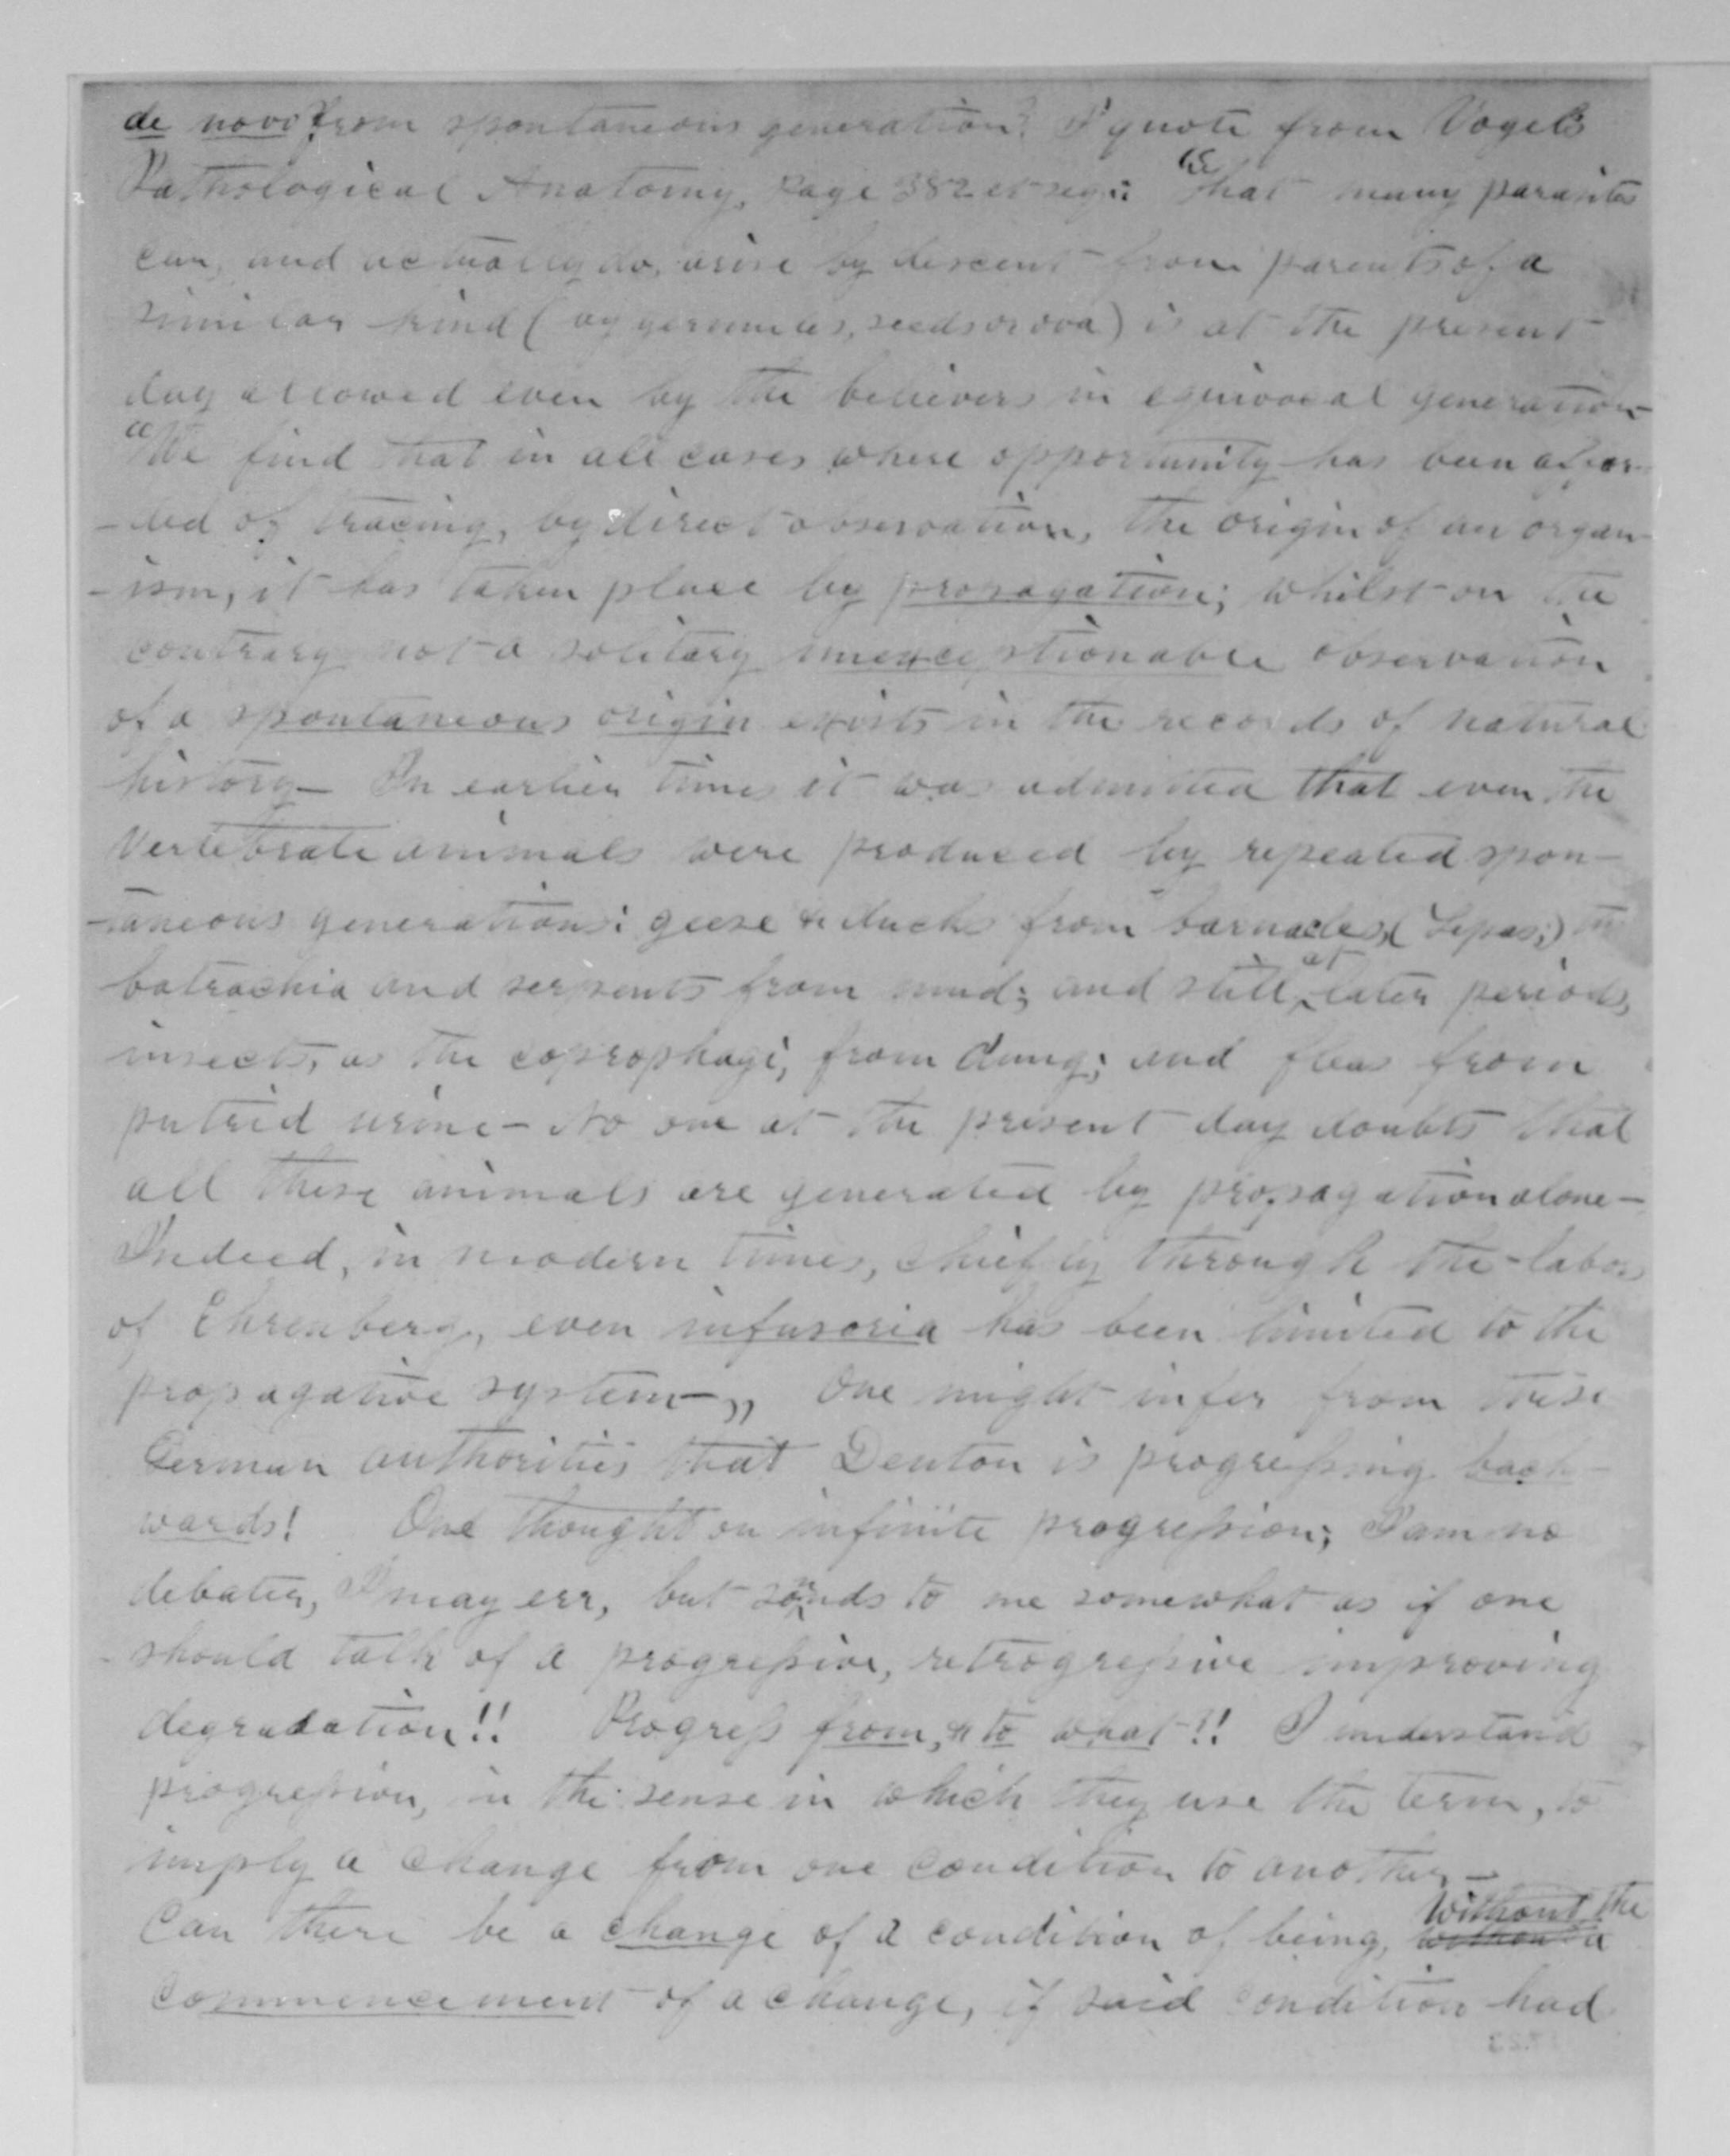 de novo from spontaneous generation? I quote from Vogel's
Pathological Anatomy, Page 382 et seq: "that many parasites
can, and actually do, arise by descent from parents of a
similar kind (by gemmules, seeds or ova) is at the present
day allowed even by the believers in equivocal generation—
"We find that in all cases where opportunity has been affor-
-ded of tracing, by direct observation, the origin of an organ-
-ism, it has taken place by propagation; whilst on the
contrary not a solitary unexceptionable observation
of a spontaneous origin exists in the records of natural
history— In earlier times it was admitted that even the
Vertebrate animals were produced by repeated spon-
-taneous generations: geese & ducks from barnacles, (Lepas;) the
batrachia and serpents from mud; and still at later periods,
insects, as the coprophagi, from dung; and fleas from
putrid urine— No one at the present day doubts that
all these animals are generated by propagation alone—
Indeed, in modern times, chiefly through the labors
of Ehrenberg, even infusoria has been limited to the
propagative system—" One might infer from these
German authorities that Denton is progressing back-
wards! One thought on infinite progression; I am no
debater, I may err, but sounds to me somewhat as if one
should talk of a progressive, retrogressive improving
degradation!! Progress from, & to what!! I understand
progression, in the sense in which they use the term, to
imply a change from one condition to another—
Can there be a change of a condition of being, without a without the
commencement of a change, if said condition had